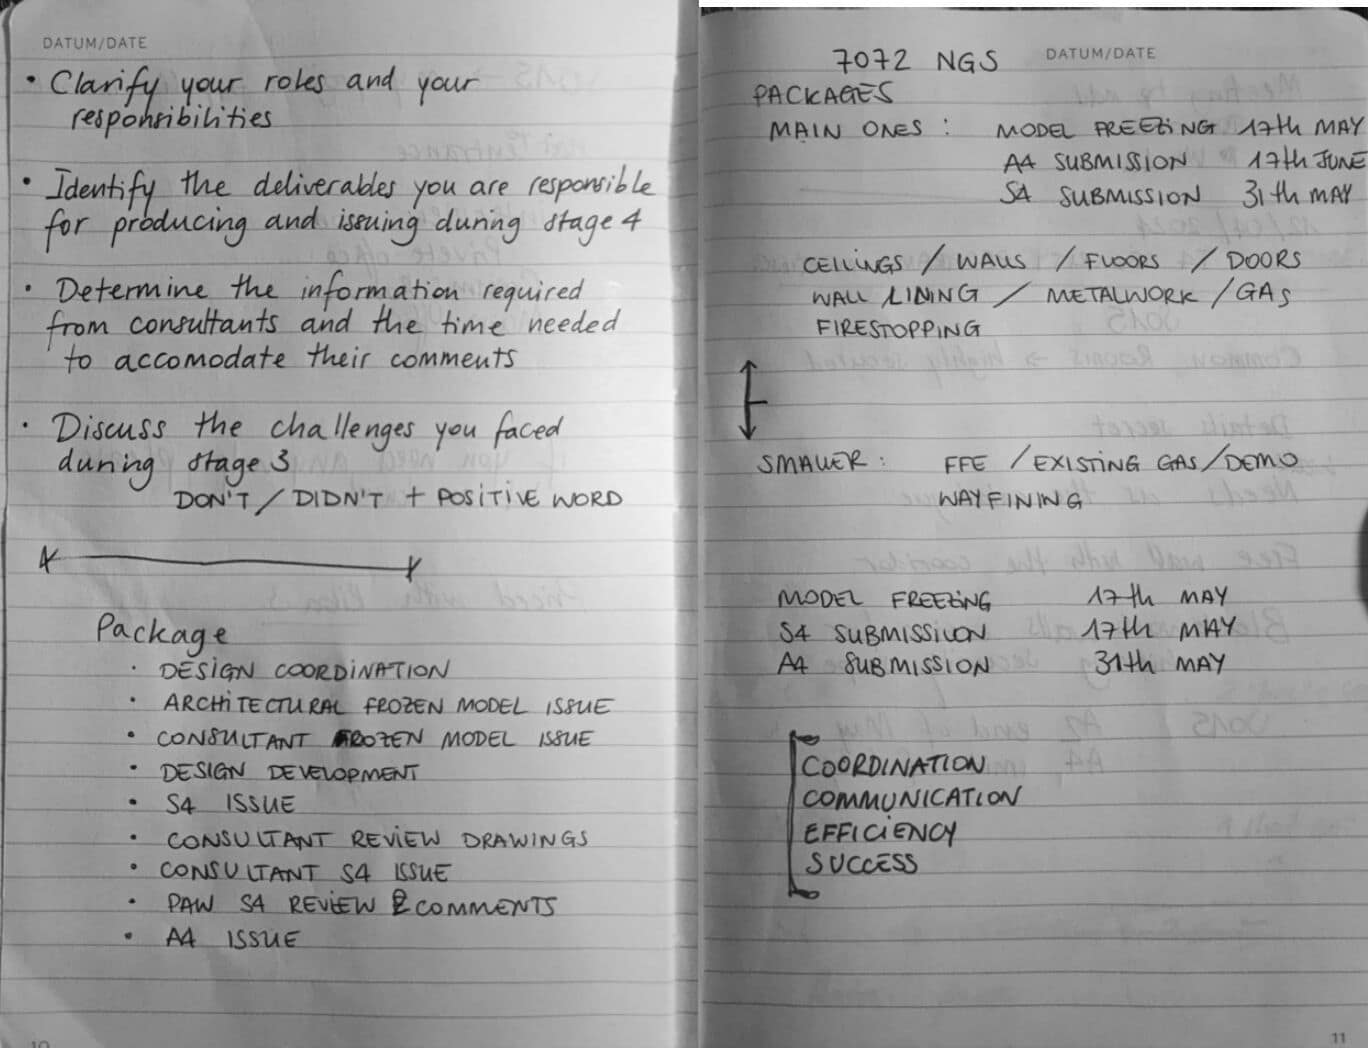 DATUM/DATE
• Clarify your roles and your
responsibilities
• Identify the deliverables you are responsible
for producing and issuing during stage 4
• Determine the information required
from consultants and the time needed
to accomodate their comments
• Discuss the challenges you faced
during stage 3
DON'T / DIDN'T + POSITIVE WORD
Package
• DESIGN COORDINATION
• ARCHITECTURAL FROZEN MODEL ISSUE
• CONSULTANT FROZEN MODEL ISSUE
• DESIGN DEVELOPMENT
• S4 ISSUE
• CONSULTANT REVIEW DRAWINGS
• CONSULTANT S4 ISSUE
• PAW S4 REVIEW & COMMENTS
• A4 ISSUE
10
7072 NGS DATUM/DATE
PACKAGES
MAIN ONES : MODEL FREEZING 17th MAY
A4 SUBMISSION 17th JUNE
S4 SUBMISSION 31th MAY
CEILINGS / WALLS / FLOORS / DOORS
WALL LINING / METALWORK / GAS
FIRESTOPPING
SMALLER : FFE / EXISTING GAS / DEMO
WAYFINING
MODEL FREEZING 17th MAY
S4 SUBMISSIION 17th MAY
A4 SUBMISSION 31th MAY
COORDINATION
COMMUNICATION
EFFICIENCY
SUCCESS
11